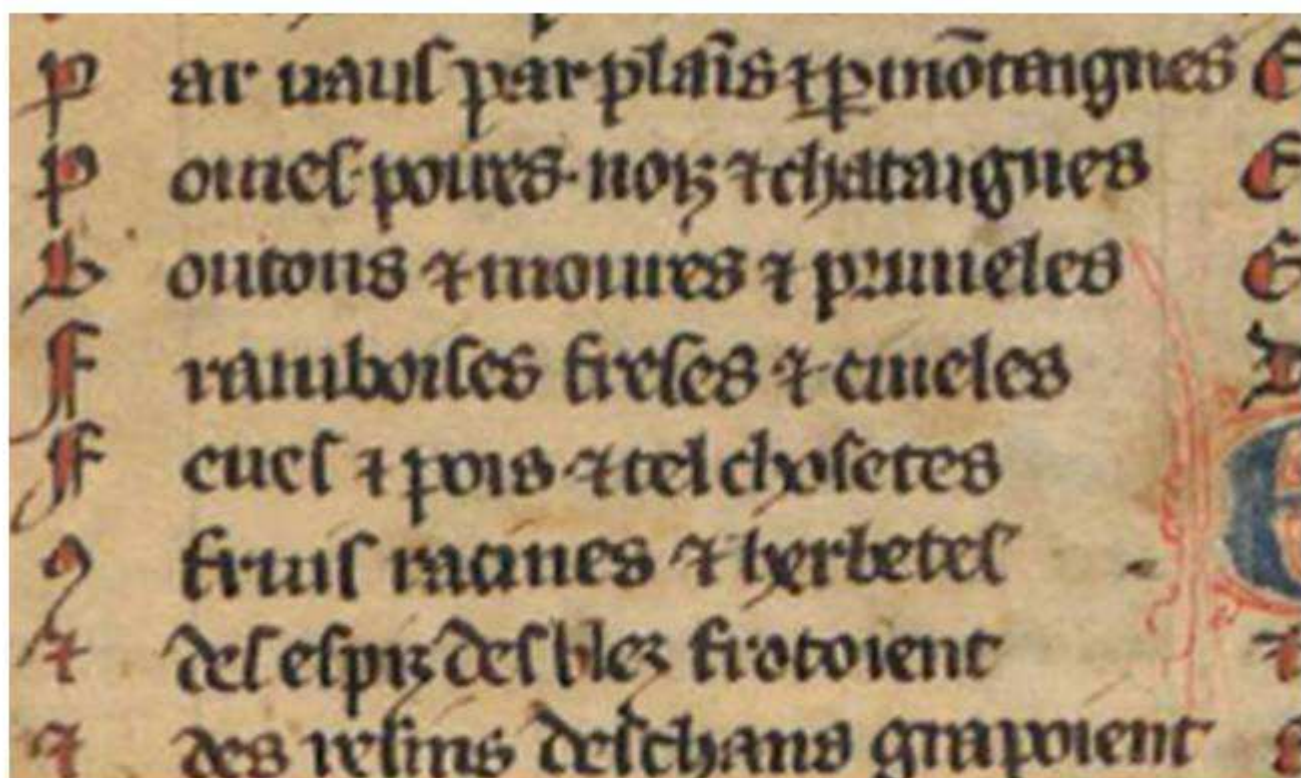 P ar uaus par plaĩs ⁊ ꝑ mõtaignes
P omes · poires · noiz ⁊ chataignes
B outons ⁊ moures ⁊ pruneles
F ramboises freses ⁊ cineles
F eues ⁊ pois ⁊ tel chosetes
9 fruis racines ⁊ herbetes
⁊ des espiz des blez frotoient
⁊ des resins des chans grapoient